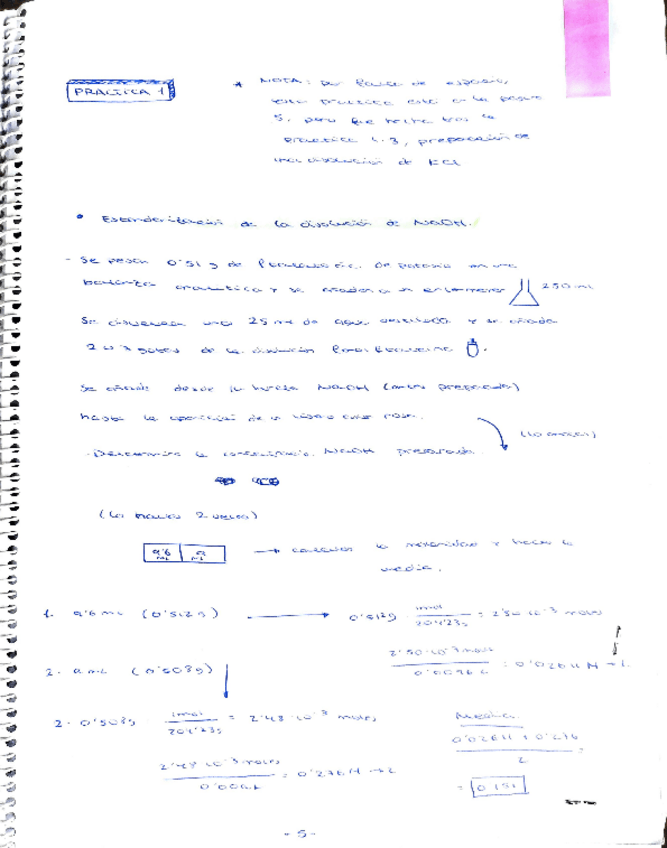 PRACTICA 1
* NOTA: por falta de espacio,
esta practica está en la página
5, para que
practica 1.3, preparación de
una disolución de KCl
• Estandarización de la disolución de NaOH.
- Se pesan 0'51 g de de potasio en una
balanza analítica y se añaden a un erlenmeyer 250 mL
Se disuelven 25 ml de agua destilada y se añade
2 o 3 gotas de la disolución fenolftaleína
Se añade desde la bureta NaOH (antes preparada)
hasta la aparición de un color rosa.
(lo anotas)
- Determinar la NaOH preparada
(Lo hacemos 2 veces)
9'6 mL 9 mL
→ calcular la molaridad y hacer la
media.
1. 9'6 mL (0'512g) → 0'512g · 1mol / 204'23g = 2'50·10⁻³ moles
2'50·10⁻³ moles / 0'0096 L = 0'0264 M → 1.
2. 9 mL (0'5083g)
2. 0'5083g 1mol / 204'23g = 2'48·10⁻³ moles
2'48·10⁻³ moles / = 0'276M → 2
Media
0'0264 + 0'276 / 2 =
= 0'151
- 5 -